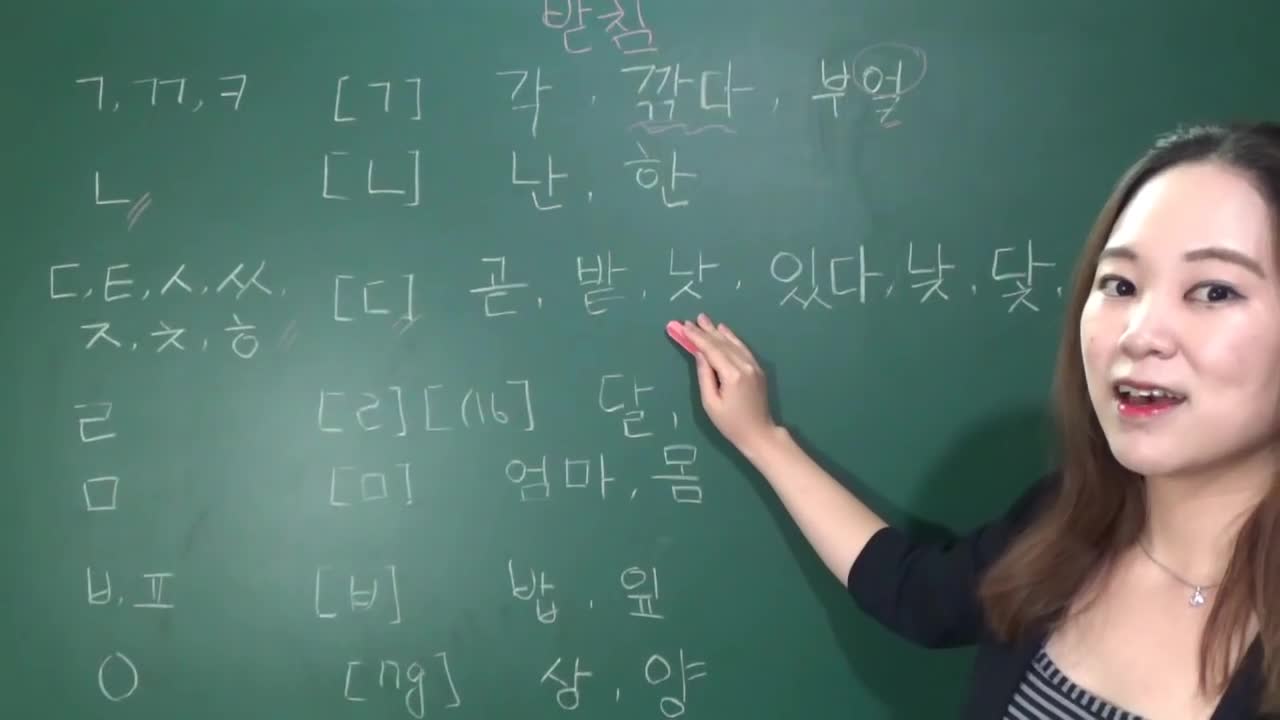 받침
ㄱ, ㄲ, ㅋ [ㄱ] 각, 깎다, 부엌
ㄴ [ㄴ] 난, 한
ㄷ, ㅌ, ㅅ, ㅆ, [ㄷ] 곧, 밭, 낫, 있다, 낮, 닻,
ㅈ, ㅊ, ㅎ
ㄹ [ㄹ] 달,
ㅁ [ㅁ] 엄마, 몸
ㅂ, ㅍ [ㅂ] 밥, 잎
ㅇ [ng] 상, 양